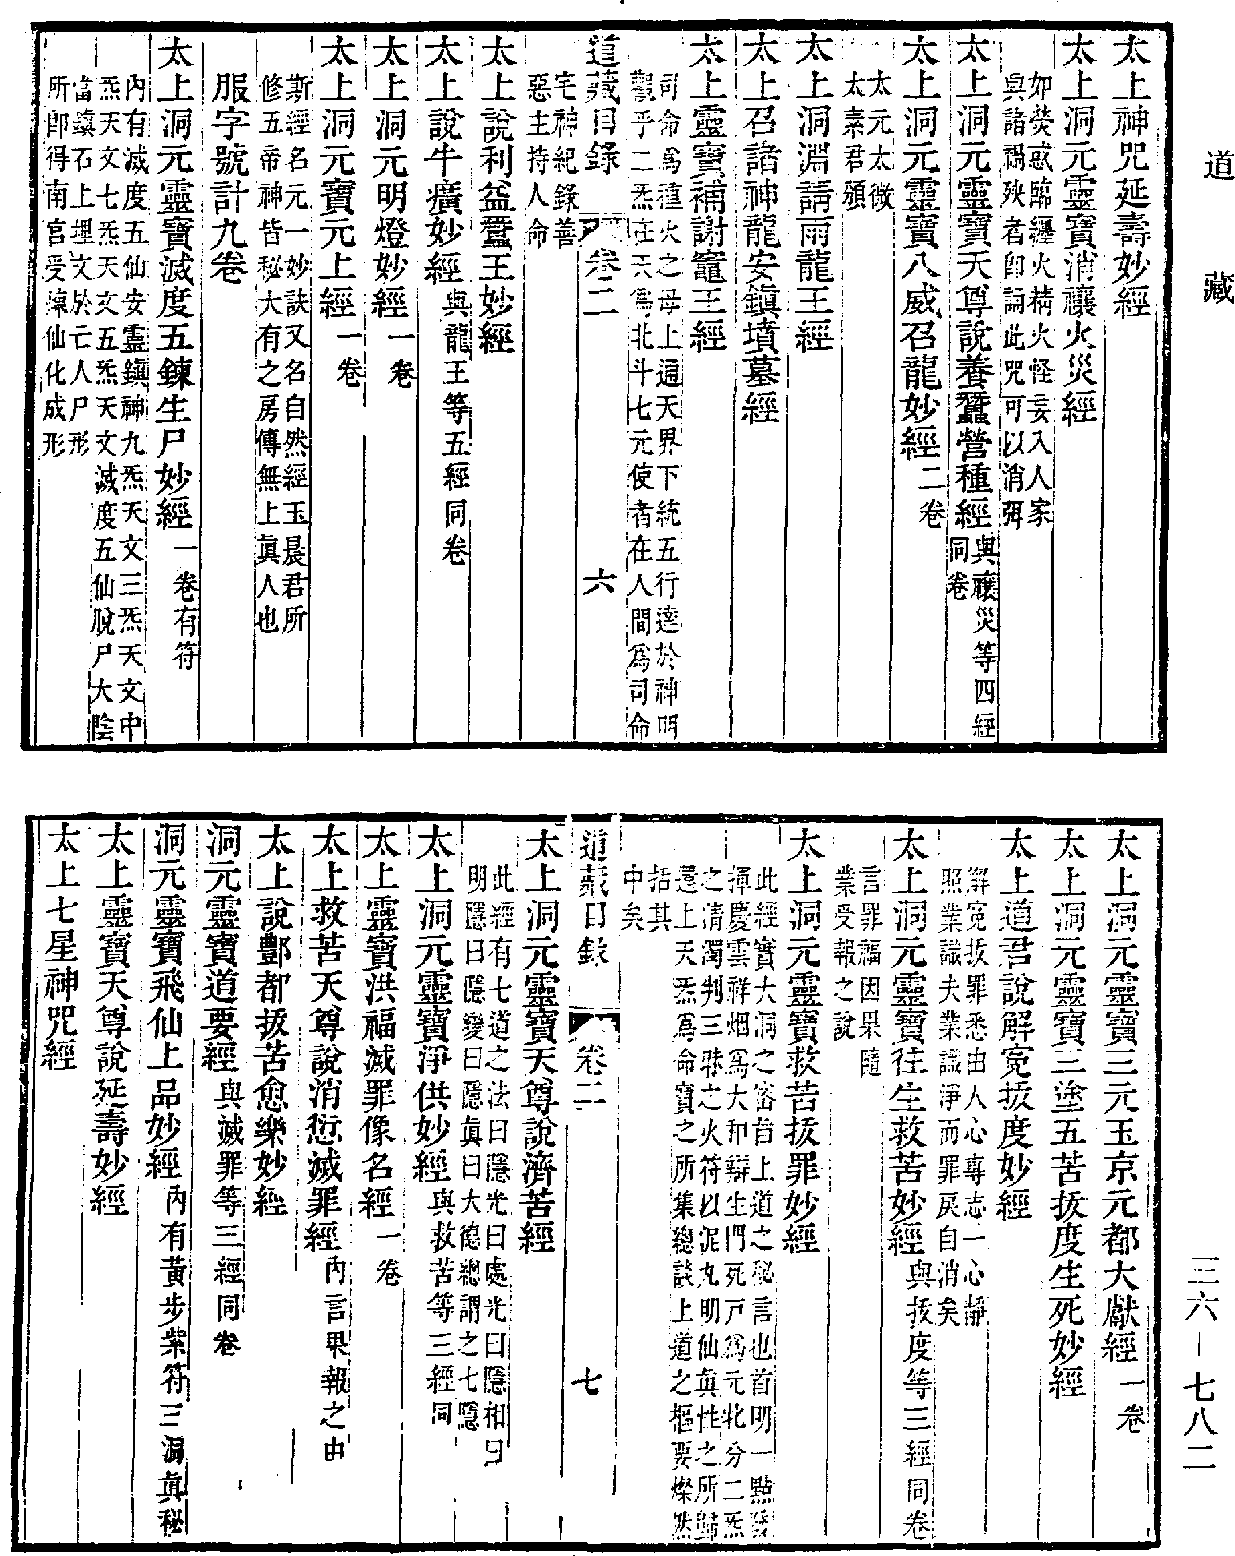 道藏
太上神咒延壽妙經
太上洞元靈寶消禳火災經
如熒惑臨纏火精火怪妄入人家
與諸禍殃者卽誦此咒可以消弭
太上洞元靈寶天尊說養蠶營種經與禳災等四經同卷
太上洞元靈寶八威召龍妙經二卷
太元太微
太素君頒
太上洞淵請雨龍王經
太上召諸神龍安鎮墳墓經
太上靈寶補謝竈王經
司命爲種火之母上通天界下統五行達於神明
觀乎二炁在天爲北斗七元使者在人間爲司命
道藏目錄 卷二 六
宅神紀錄善
惡主持人命
太上說利益蠶王妙經
太上說牛癀妙經與龍王等五經同卷
太上洞元明燈妙經一卷
太上洞元寶元上經一卷
斯經名元一妙訣又名自然經玉晨君所
修五帝神皆秘大有之房傳無上眞人也
服字號計九卷
太上洞元靈寶滅度五鍊生尸妙經一卷有符
內有滅度五仙安靈鎮神九炁天文三炁天文中
炁天文七炁天文五炁天文滅度五仙脫尸大陰
當鎮石上埋文於亡人尸形
所卽得南宮受鍊仙化成形
太上洞元靈寶三元玉京元都大獻經一卷
太上洞元靈寶三塗五苦拔度生死妙經
太上道君說解寃拔度妙經
解寃拔罪悉由人心專志一心靜
照業識夫業識淨而罪戾自消矣
太上洞元靈寶往生救苦妙經與拔度等三經同卷
言罪福因果隨
業受報之說
太上洞元靈寶救苦拔罪妙經
此經寶大洞之密旨上道之秘言也首明一點發
揮慶雲祥烟爲大和辯生門死戸爲元牝分二炁
之清濁判三昧之火符以泥丸明仙眞性之所歸
還上天炁爲命寶之所集總談上道之樞要燦然
括其
中矣
道藏目錄 卷二 七
太上洞元靈寶天尊說濟苦經
此經有七道之法曰隱光曰處光曰隱相曰
明隱曰隱變曰隱眞曰大德總謂之七隱
太上洞元靈寶淨供妙經與救苦等三經同
太上靈寶洪福滅罪像名經一卷
太上救苦天尊說消愆滅罪經內言果報之由
太上說酆都拔苦愈樂妙經
洞元靈寶道要經與滅罪等三經同卷
洞元靈寶飛仙上品妙經內有黃步紫符三洞眞秘
太上靈寶天尊說延壽妙經
太上七星神咒經
三六—七八二